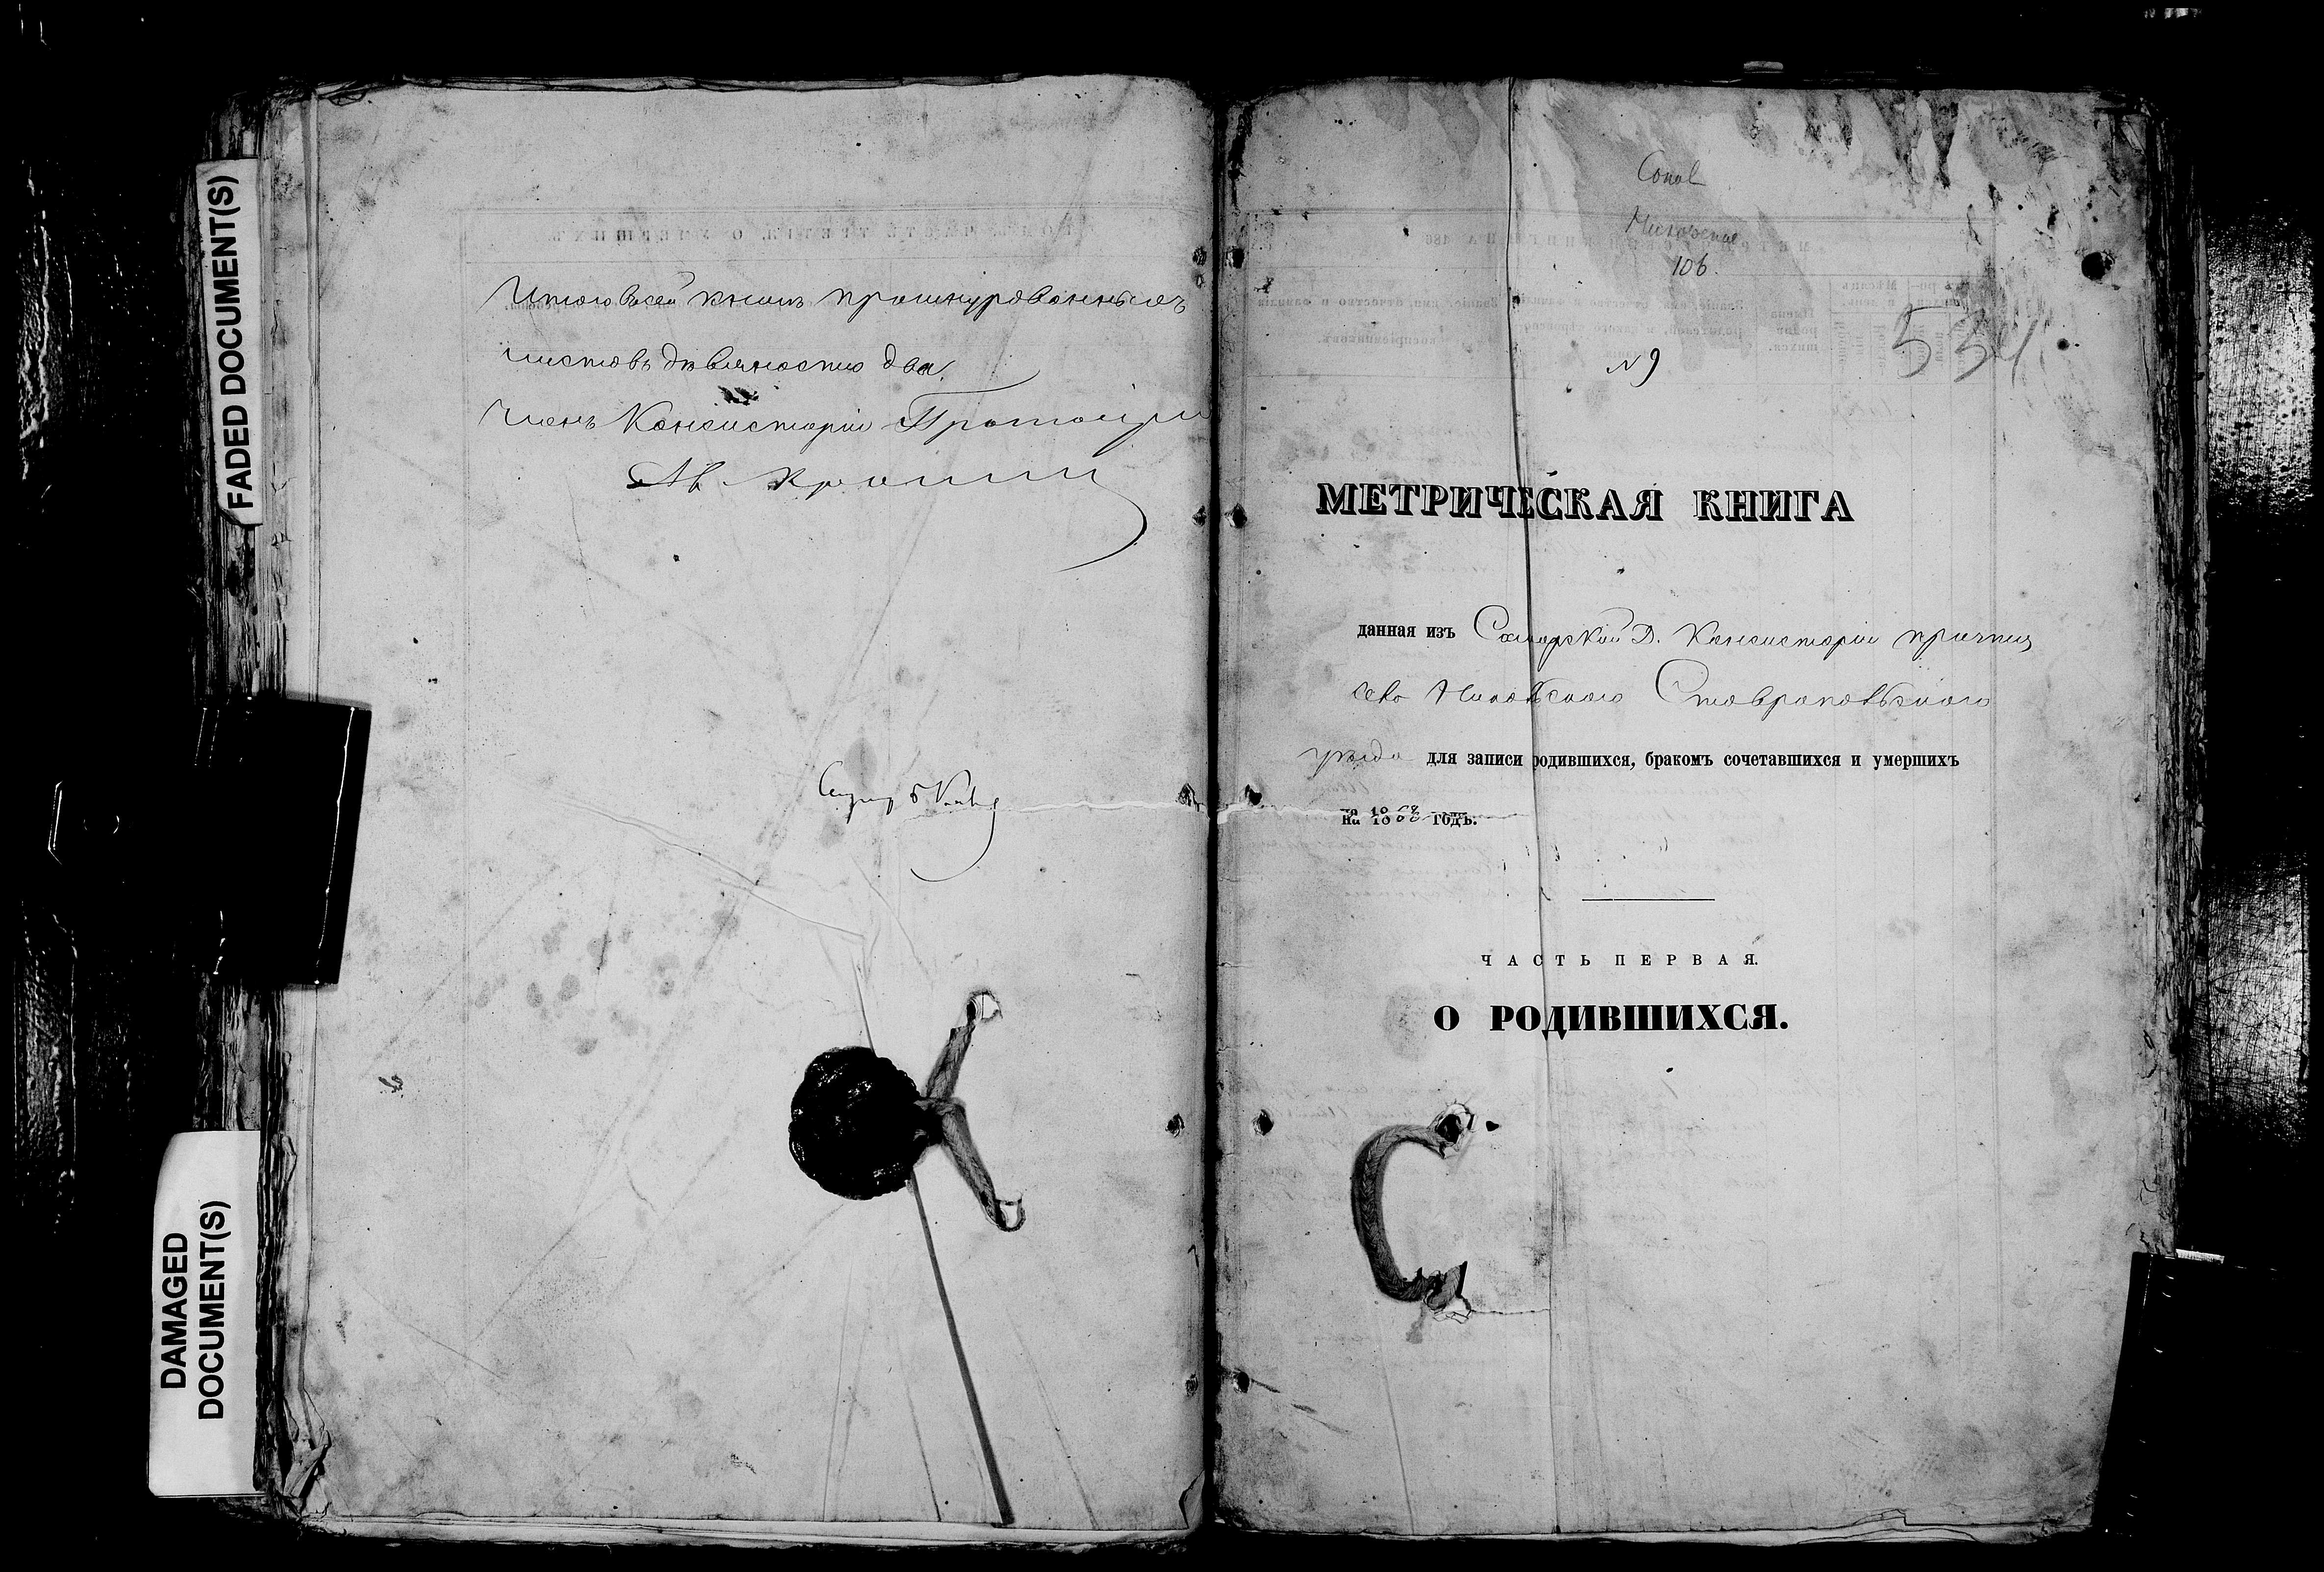 FADED DOCUMENT(S)
DAMAGED
DOCUMENT(S)
Итого всей книги прошнурованныхъ
листовъ девяносто два.
Членъ Консисторіи Протоіерей
106.
534
№ 9
МЕТРИЧЕСКАЯ КНИГА
данная изъ Самарской Д. Консисторіи причту
села Ставропольскаго
уѣзда для записи родившихся, бракомъ сочетавшихся и умершихъ
на 1868 годъ.
ЧАСТЬ ПЕРВАЯ.
О РОДИВШИХСЯ.